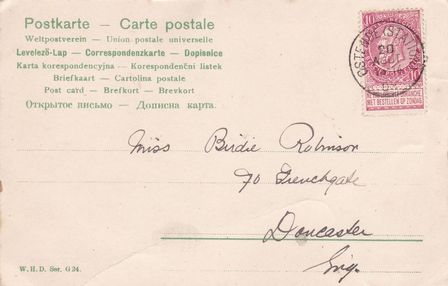 Postkarte - Carte postale
Weltpostverein - Union postale universelle
Levelező-Lap - Correspondenzkarte - Dopisnice
Karta korespondencyjna - Korespondenčni listek
Briefkaart - Cartolina postale
Post card - Brefkort - Brevkort
Открытое письмо - Дописна карта.
10
OSTENDE (STATION)
20
NIET BESTELLEN OP ZONDAG
Miss Birdie Robinson
70 Frenchgate
Doncaster
Eng.
W. H. D. Ser. G 24.